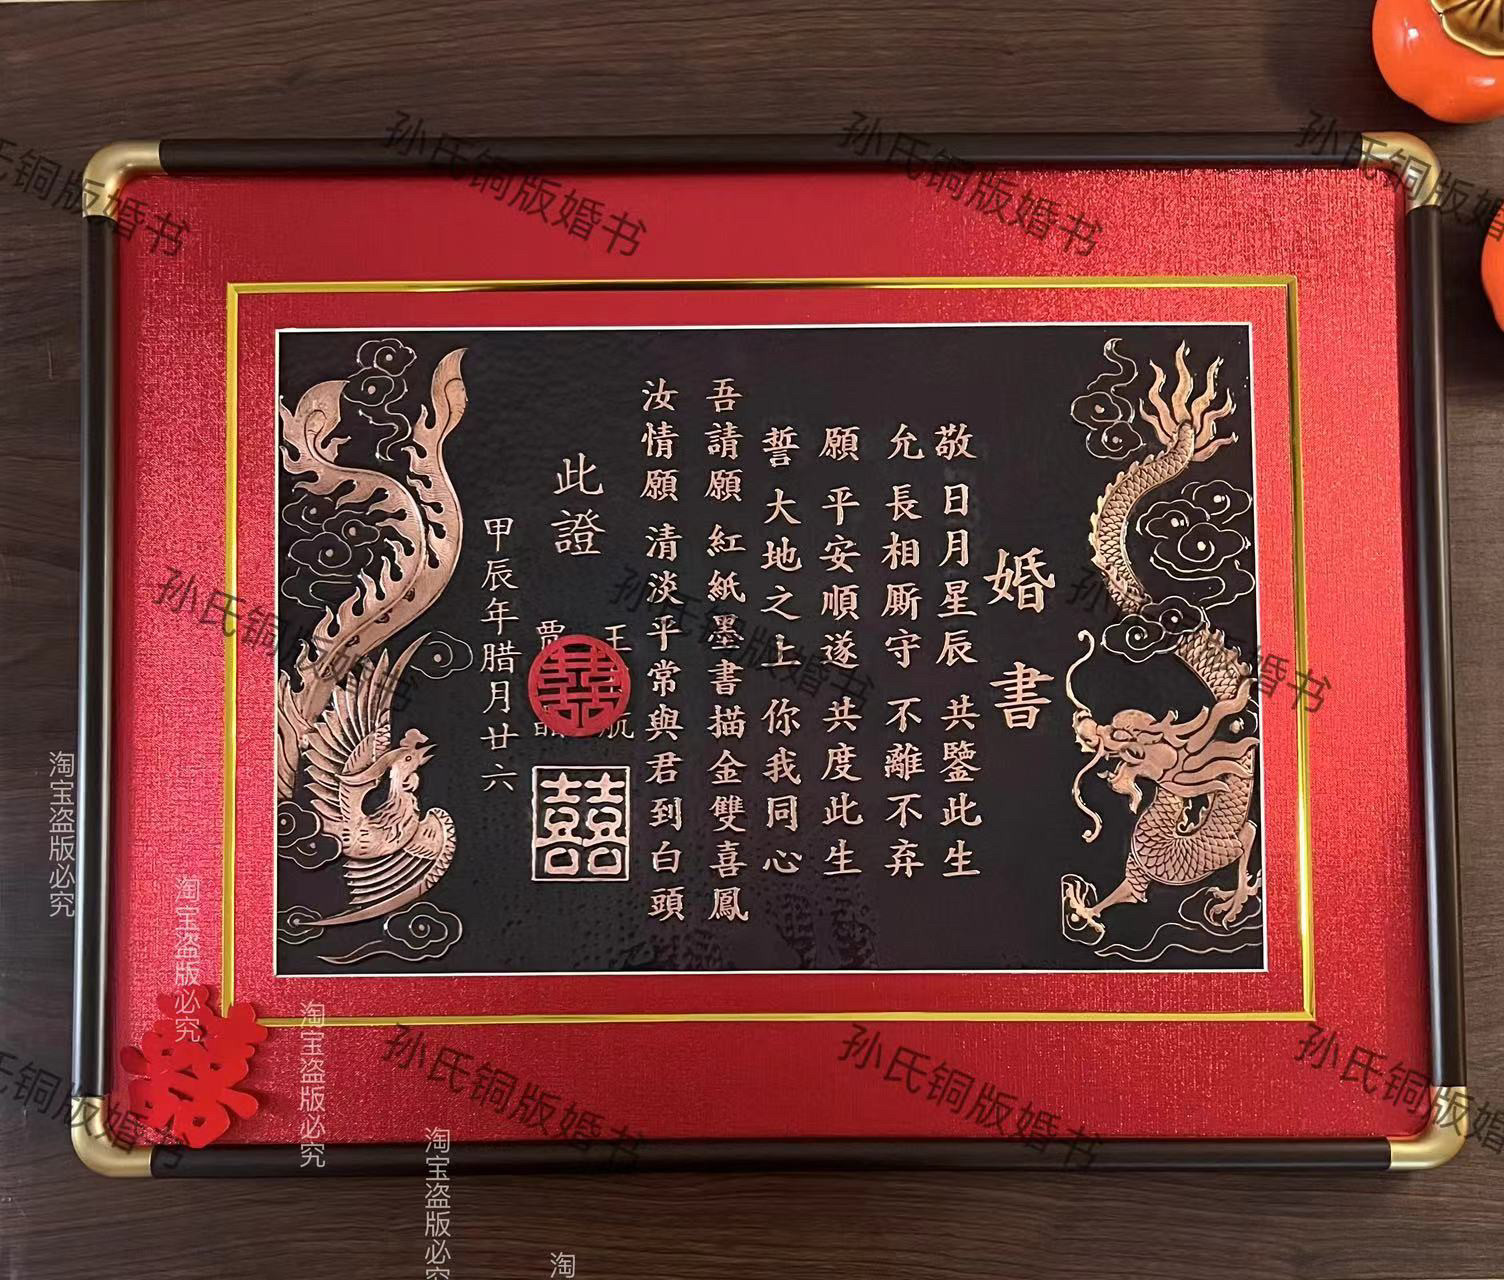 婚書
敬 日月星辰 共鑒此生
允 長相厮守 不離不弃
願 平安順遂 共度此生
誓 大地之上 你我同心
吾請願 紅紙墨書描金雙喜鳳
汝情願 清淡平常與君到白頭
此證
王
甲辰年腊月廿六
囍
囍
囍
孙氏铜版婚书
孙氏铜版婚书
孙氏铜版婚书
氏铜版婚书
孙氏铜版婚书
孙氏铜版婚书
孙氏铜版婚书
孙氏铜版婚书
孙氏铜版婚书
孙氏铜版婚
氏铜版婚书
淘宝盗版必究
淘宝盗版必究
淘宝盗版必究
淘宝盗版必究
淘